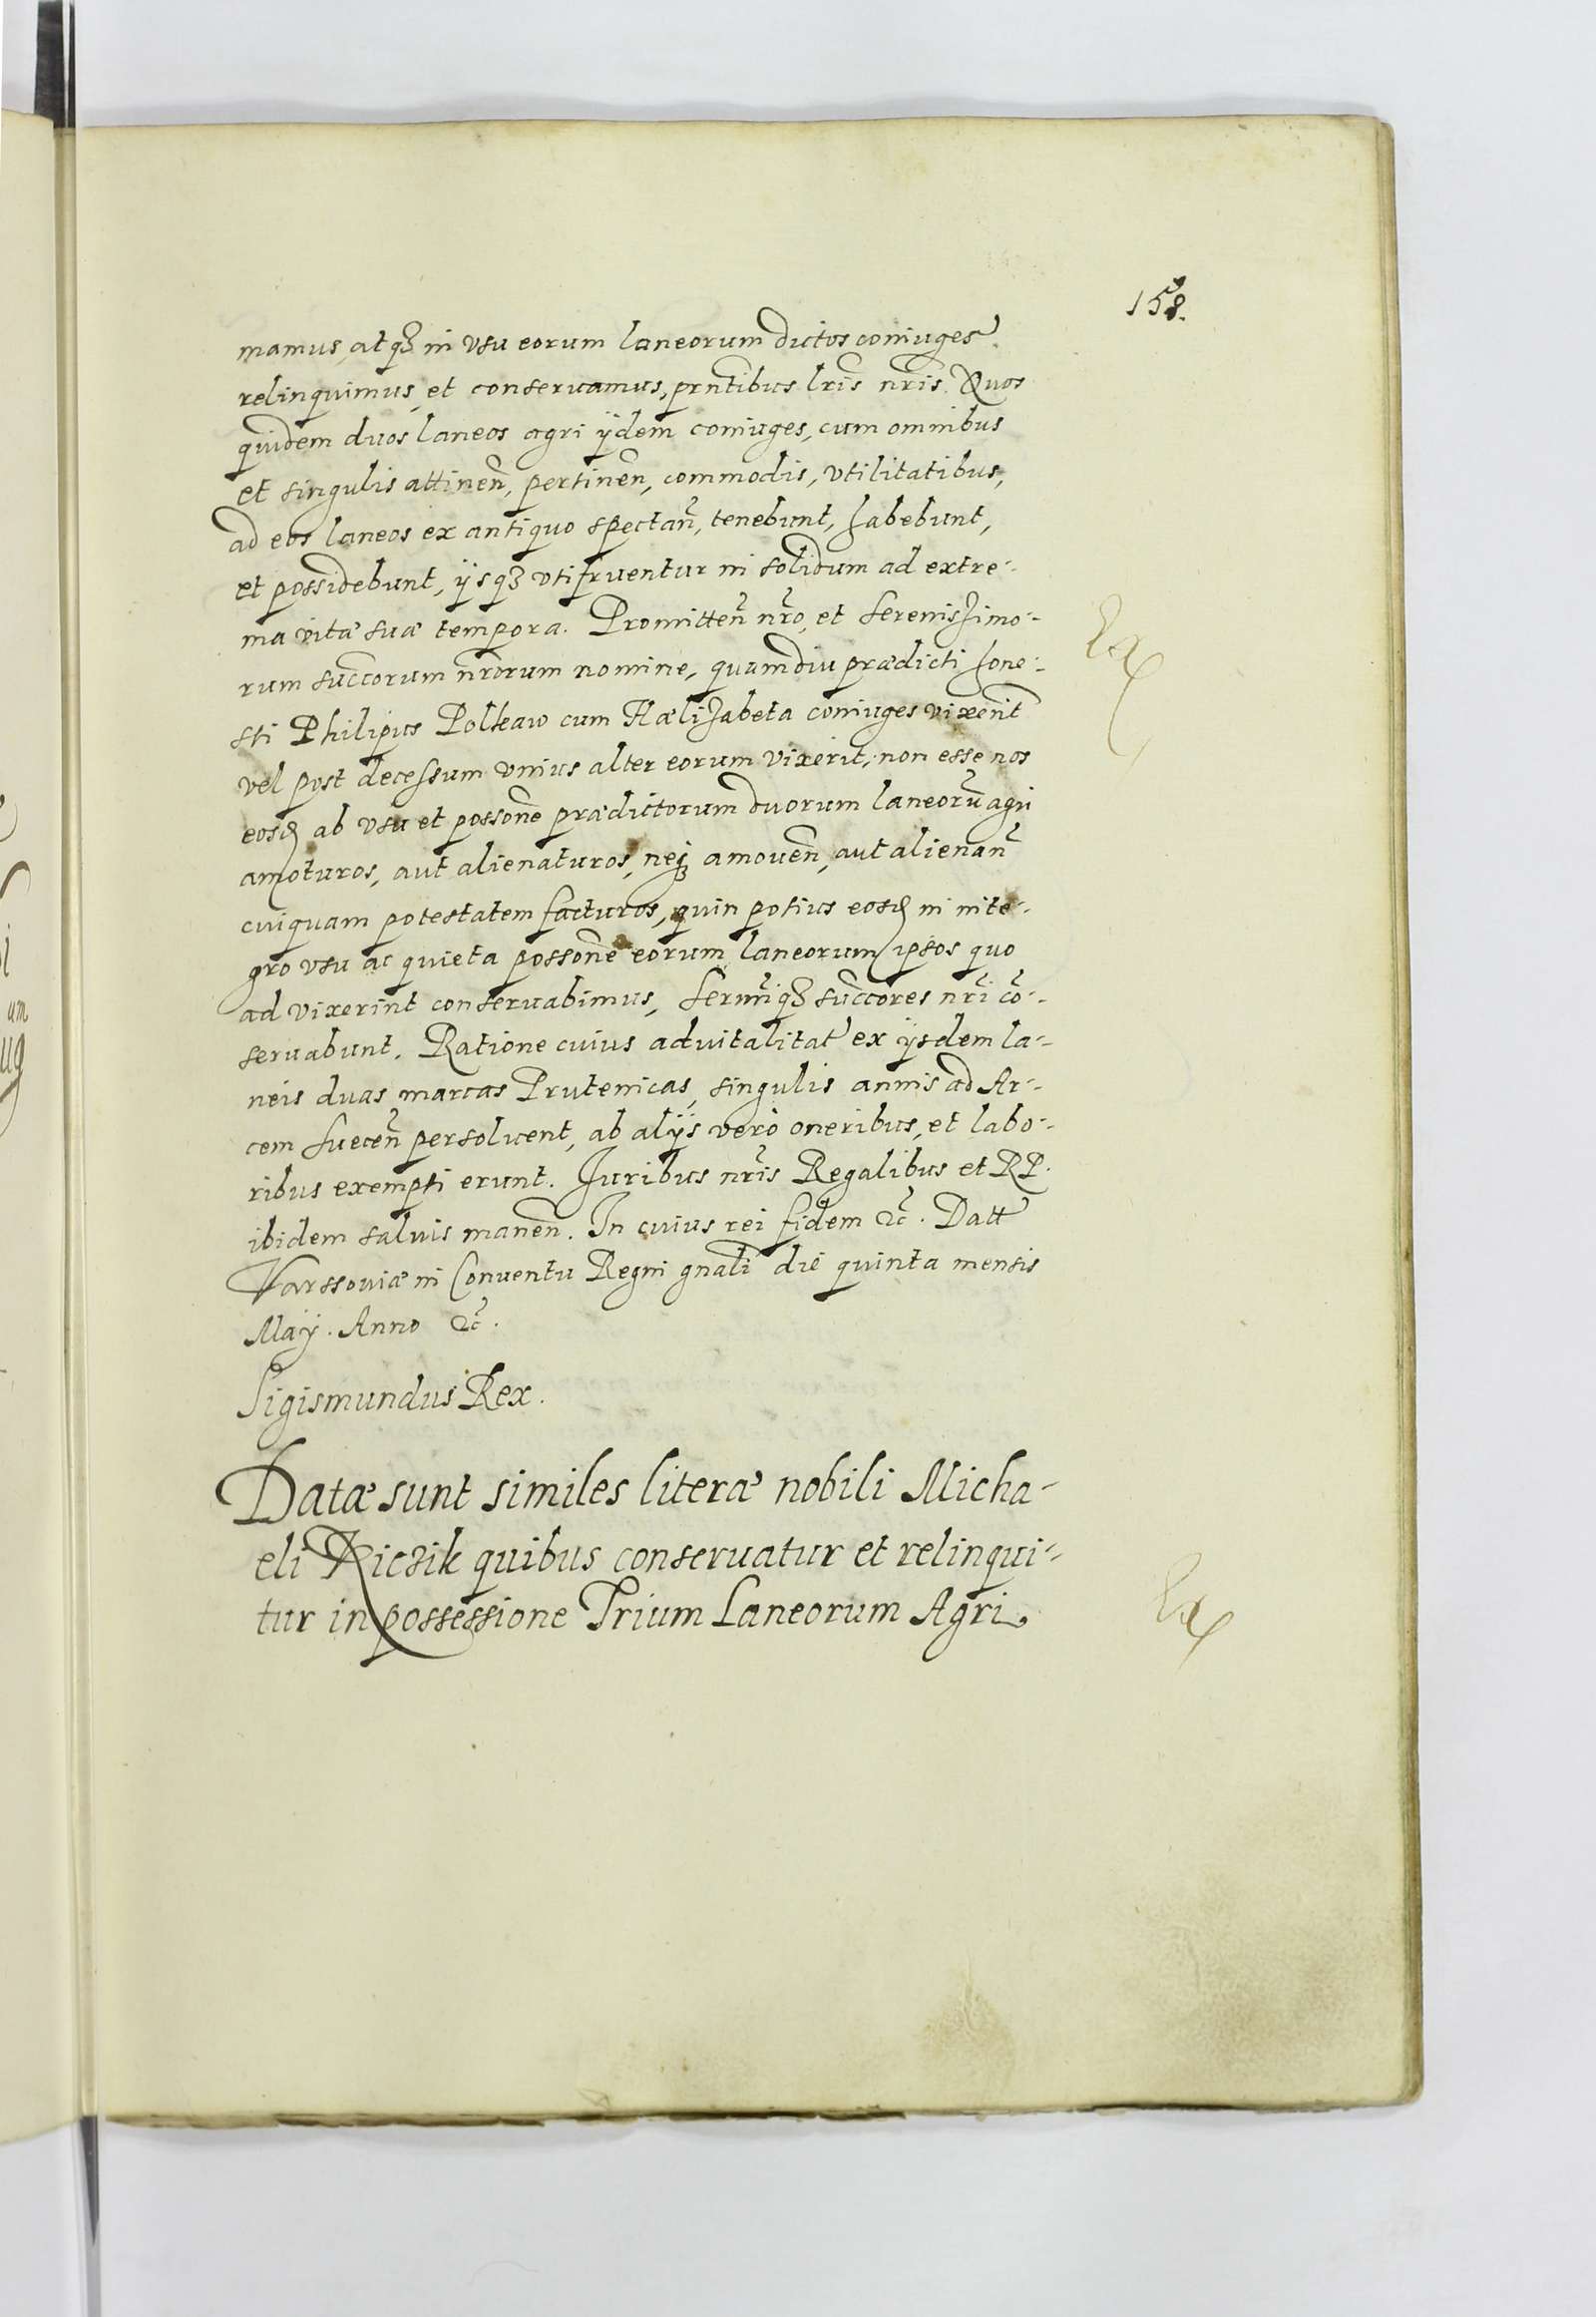 158.
mamus, atq3 in vsu eorum laneorum dictos coniuges
relinquimus, et conseruamus, prntibus lris nris. Quos
quidem duos laneos agri ijdem coniuges, cum omnibus
et singulis attinen, pertinen, commodis, vtilitatibus,
ad eos laneos ex antiquo spectan, tenebunt, habebunt,
et possidebunt, ijsq3 vtifruentur in solidum ad extre-
ma vitæ suæ tempora. Promitten nro, et Serenissimo-
rum succorum nrorum nomine, quamdiu prædicti hone-
sti Philipus Polkaw cum Hælizabeta coniuges vixerint
vel post decessum vnius alter eorum vixerit, non esse nos
eosd ab vsu et possone prædictorum duorum laneoru agri
amoturos, aut alienaturos, neq3 amouen, aut alienan
cuiquam potestatem facturos, quin potius eosd in inte-
gro vsu ac quieta possone eorum laneorum ipsos quo
ad vixerint conseruabimus, Sermiq3 succores nri co-
seruabunt. Ratione cuius aduitalitat ex ijsdem la-
neis duas marcas Prutenicas, singulis annis ad Ar-
cem Suecen persoluent, ab alijs vero oneribus, et labo-
ribus exempti erunt. Juribus nris Regalibus et RP.
ibidem saluis manen. In cuius rei fidem &c. Datt
Varssouiæ in Conuentu Regni gnali die quinta mensis
Maij. Anno &c.
Sigismundus Rex.
Datæ sunt similes literæ nobili Micha-
eli Riczik quibus conseruatur et relinqui-
tur in possessione Trium Laneorum Agri.